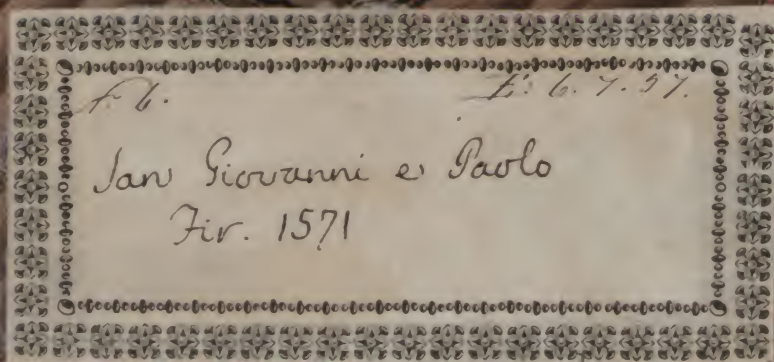 E: 6. 7. 37.
San Giovanni e Paolo
Fir. 1571